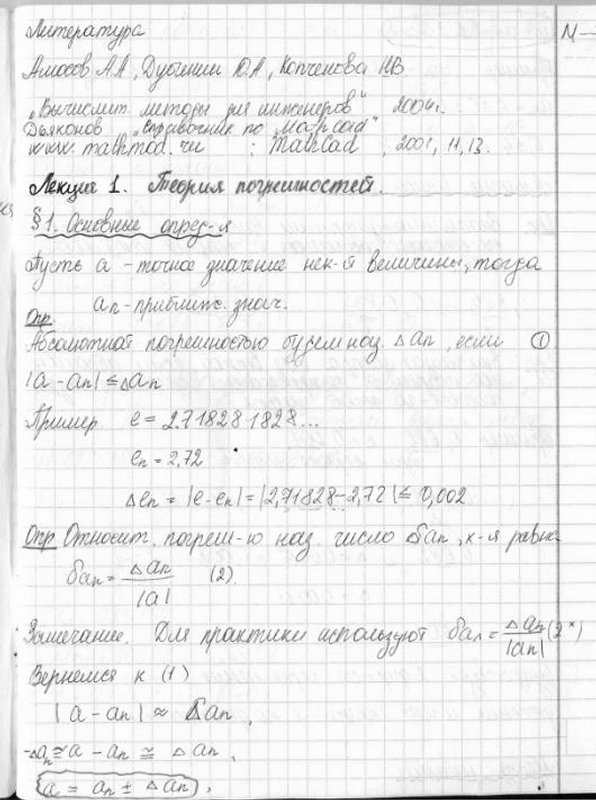 Литература
Амосов АА, Дубинин ЮА, Копченова НВ.
"Вычислит. методы для инженеров" 2004г.
Дьяконов "Справочник по Mathcad"
www. mathmod. ru ; MathCad , 2001, 11, 13.
Лекция 1. Теория погрешностей.
§1. Основные опред-я
Пусть a - точное значение нек-й величины, тогда
an - приближ. знач.
Опр
Абсолютной погрешностью будем наз. Δan, если ①
|a - an| ≤ Δan
Пример e = 2.718281828...
en = 2,72
Δen = |e - en| = |2,71828 - 2,72| ≤ 0,002
Опр Относит. погреш-ю наз число δan, к-я равна
δan = Δan / |a| (2).
Замечание. Для практики используют δan = Δan / |an| (2*)
Вернемся к (1)
|a - an| ≈ Δan,
-Δan ≅ a - an ≅ Δan,
a = an ± Δan,